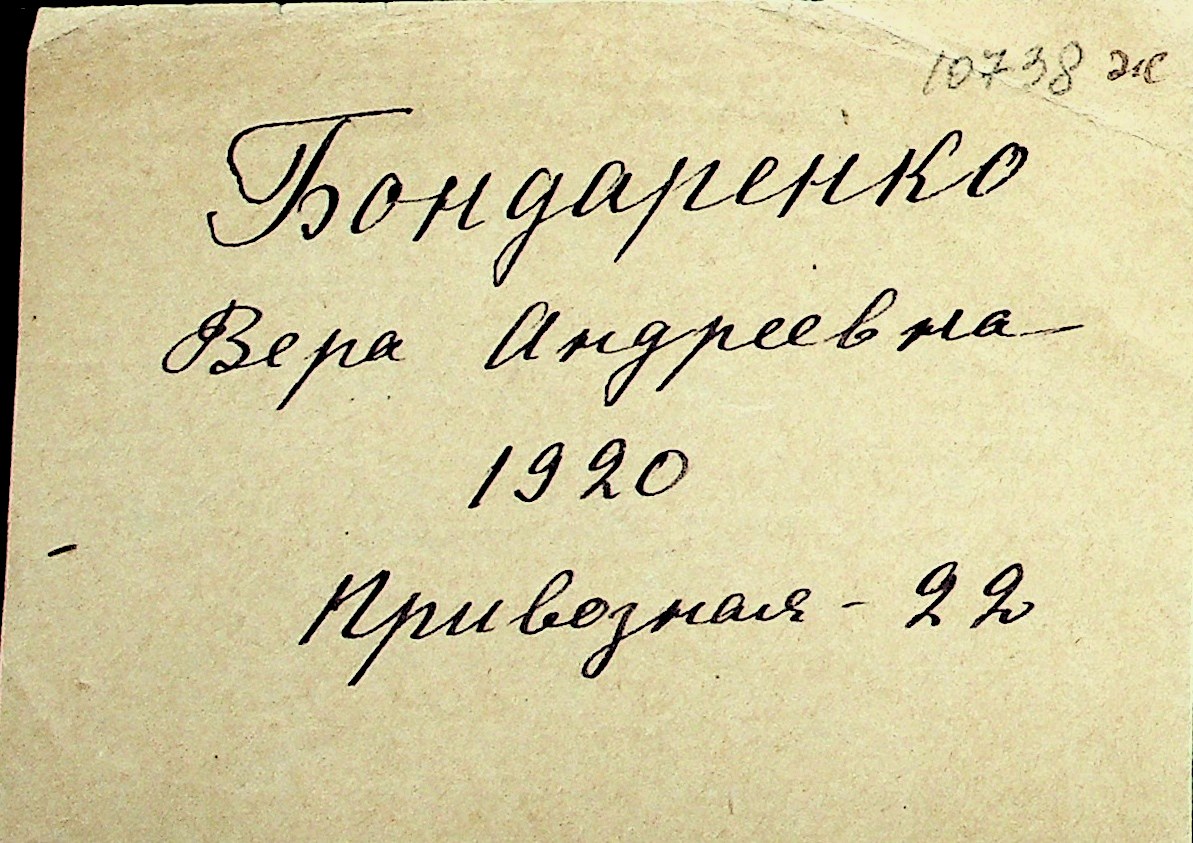 10738 ж
Бондаренко
Вера Андреевна
1920
Привозная - 22